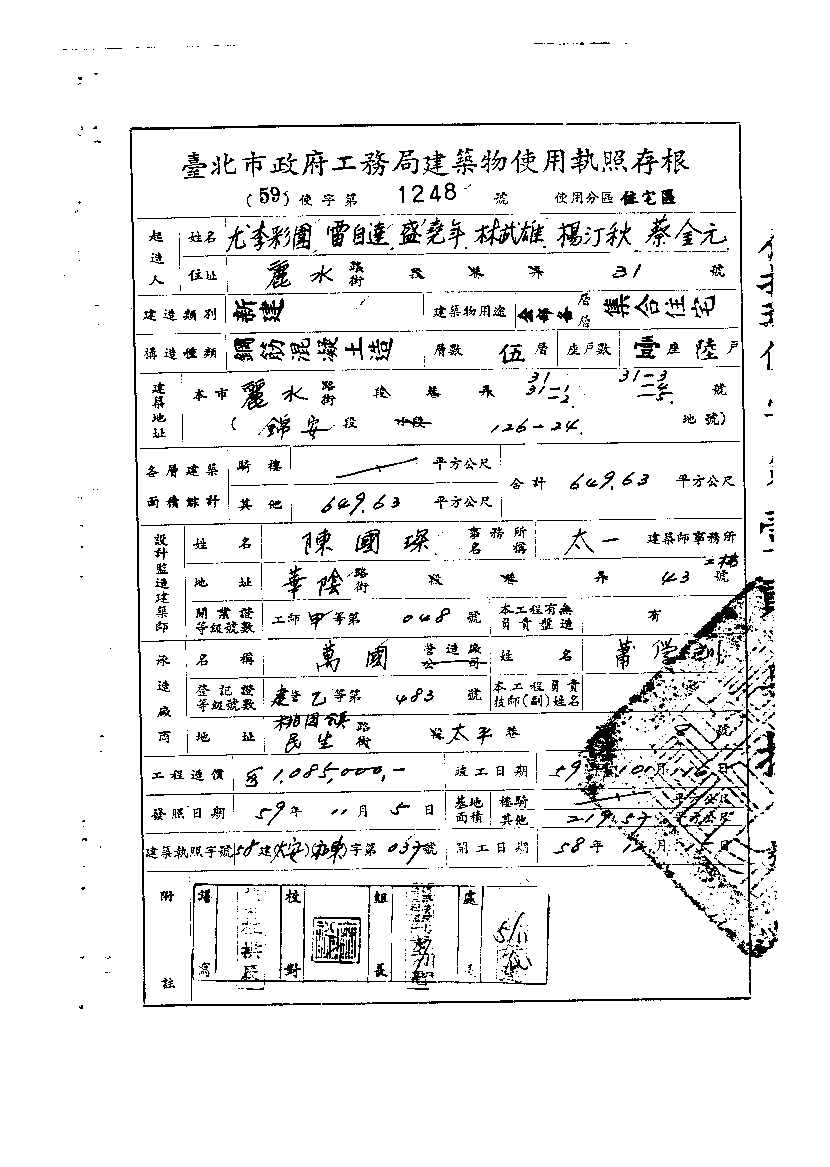 臺北市政府工務局建築物使用執照存根
(59)使字第 1248 號 使用分區 住宅區
起造人 姓名 尤李彩團 雷自達 盛堯年 林武雄 楊汀秋 蔡金元
住址 麗水 路街 段 巷 弄 31 號
建造類別 新建 建築物用途 層層 集合住宅
構造種類 鋼筋混凝土造 層數 伍層 座戶數 座 陸戶
建築地址 本市 麗水 路街 段 巷 弄 31 31-1 -2 31-3 -4 -5 號
(錦安段 小段 126-24 地號)
各層建築面積餘計 騎樓 平方公尺 合計 649.63 平方公尺
其他 649.63 平方公尺
設計監造建築師 姓名 陳國琛 事務所名稱 太一 建築師事務所
地址 華陰 路街 段 巷 弄 43 號 二樓
開業證等級號數 工師甲等第 048 號 本工程有無負責監造 有
承造廠商 名稱 萬國 營造廠公司 姓名
登記證等級號數 建營乙等第 483 號 本工程負責技師(副)姓名
地址 桃園鎮民生 路街 段 太平巷 號
工程造價 1,085,000,- 竣工日期 59年10月16日
發照日期 59年11月5日 基地面積 樓騎 平方公尺
其他 219.57 平方公尺
建築執照字號 58建(大安)( )字第037號 開工日期 58年 月15日
附註 繕寫 校對 組長 處長 5/11